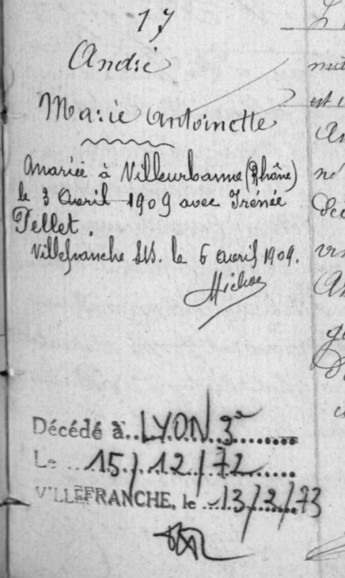 17
André
Marie Antoinette
Mariée à Villeurbanne (Rhône)
le 3 Avril 1909 avec Irénée
Pellet.
Villefranche S/S. le 6 avril 1909.
Décédé à LYON 3e
Le 15/12/72
VILLEFRANCHE, le 13/2/73